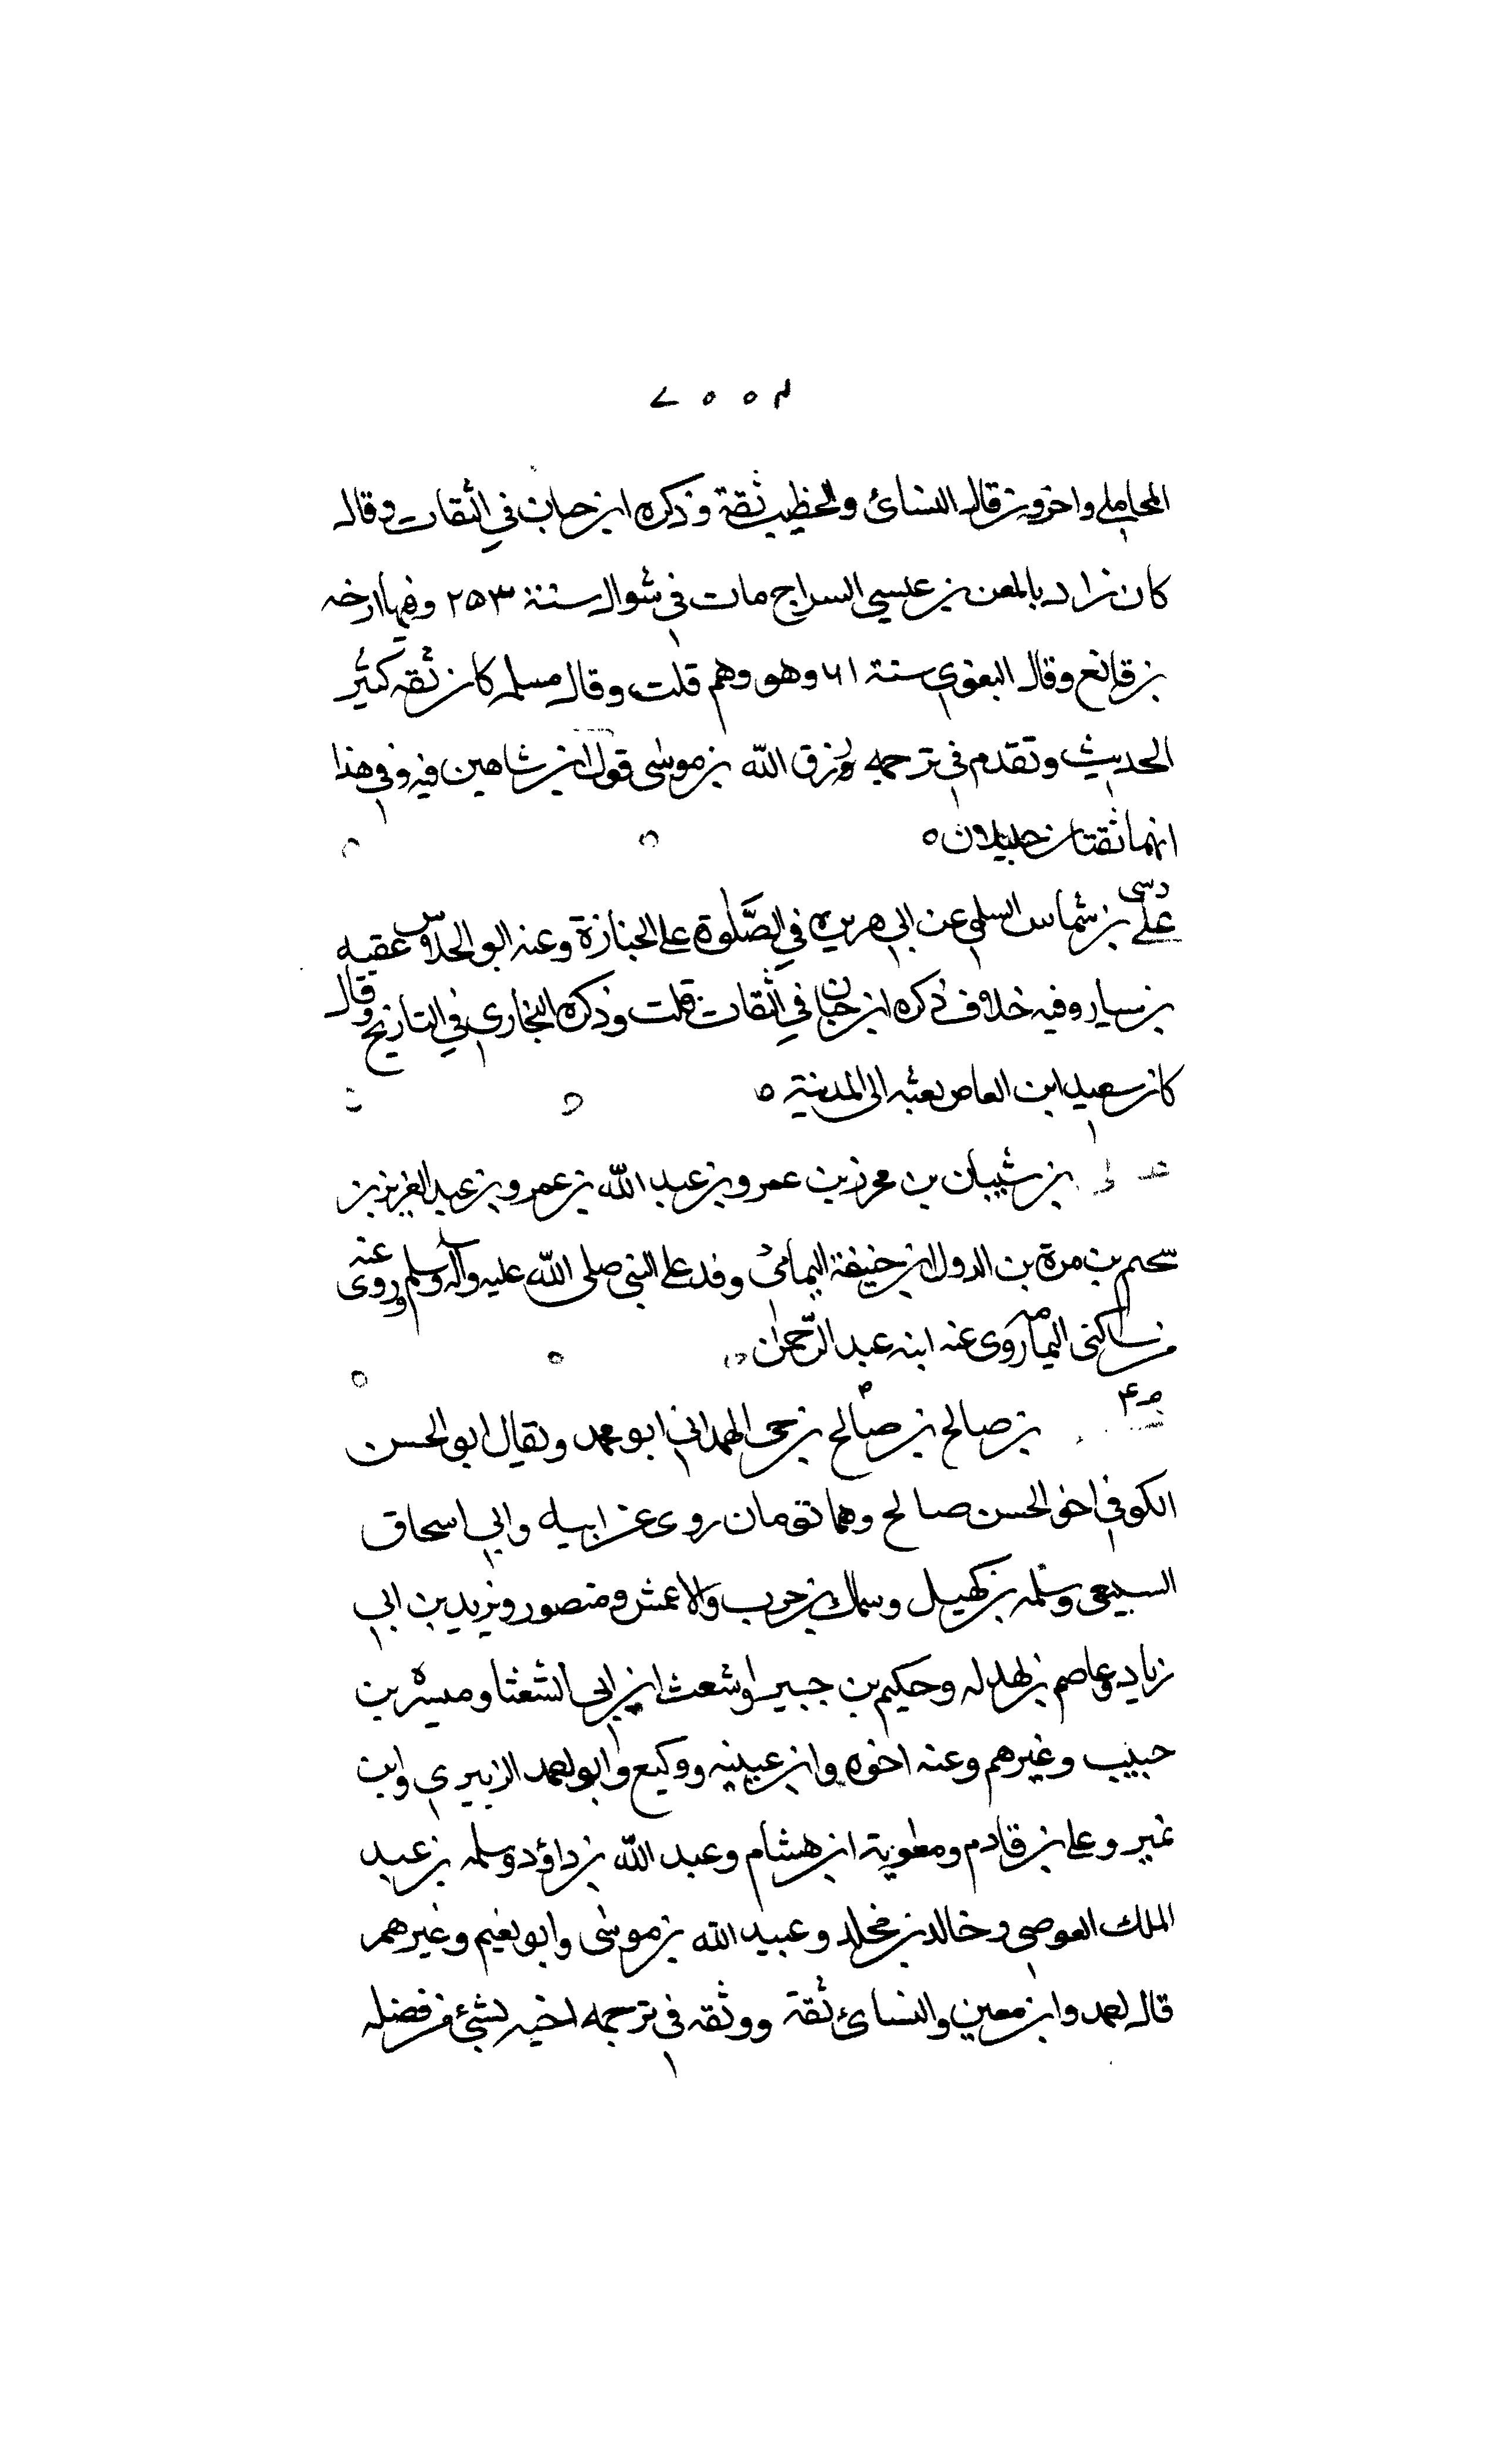 المحاملي واخرون قال النسائ والخطيب ثقة وذكره ابن حبان في الثقات وقال
كان زاد بالمعن بن عيسي السراج مات في شوال سنة ٢٥٣ وفيها ارخه
بن قانع وقال البغوي سنة ٦١ وهو وهم قلت وقال مسلمه كان ثقه كثير
الحديث وتقدم في ترجمه رزق الله بن موسى قول ابن شاهين فيه وفي هذا
انهما ثقتان جليلان ه
دسى
علي بن شماس السلمي عن ابي هريره في الصَّلٰوة على الجنازة وعنه ابو الجلاس عقبه
بن سيار وفيه خلاف ذكره ابن حبان في الثقات قلت وذكره البخاري في التاريخ وقال
كان سعيد ابن العاص بعثه الى المدينة ه
بن شيبان بن محرز بن عمرو بن عبد الله بن عمرو بن عبد العزيز بن
سحيم بن مرة بن الدول ابن حنيفة اليمامى وفد على النبي صلى الله عليه وآله وسلم وروى عنه
من ساكنى اليمامه روى عنه ابنه عبد الرّحمٰن
بن صالح بن صالح بن حى الهمداني ابو محمد ويقال ابو الحسن
الكوفي اخو الحسن صالح وهما توءمان روى عن ابيه وابي اسحاق
السبيعى وسلمه بن كهيل وسماك بن حرب والاعمش ومنصور ويزيد بن ابي
زياد وعاصم بن بهدله وحكيم بن جبير واشعث ابن ابي الشعثا وميسره بن
حبيب وغيرهم وعنه اخوه وابن عيينه ووكيع وابو احمد الزبيري وابن
نمير وعلى بن قادم ومعٰوية ابن هشام وعبد الله بن داؤد وسلمه بن عبد
الملك العوصي وخالد بن مخلد وعبيد الله بن موسٰى وابو نعيم وغيرهم
قال احمد وابن معين والنسائ ثقة ووثقه في ترجمه اخيه بشئ من فضله